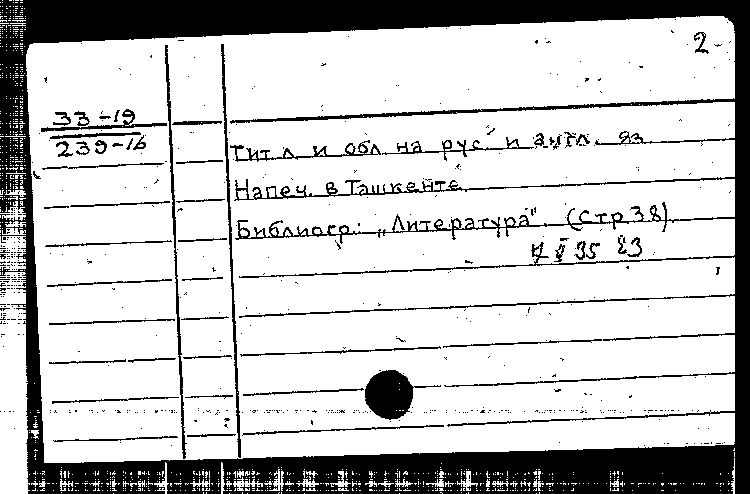 2
33-19
239-16
Тит л. и обл. на рус и англ. яз
Напеч. в Ташкенте.
Библиогр.: „Литература". (стр 38).
35 23